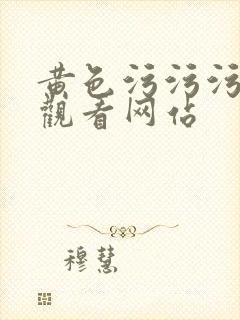 黄色污污污
觀看网站
穆慧